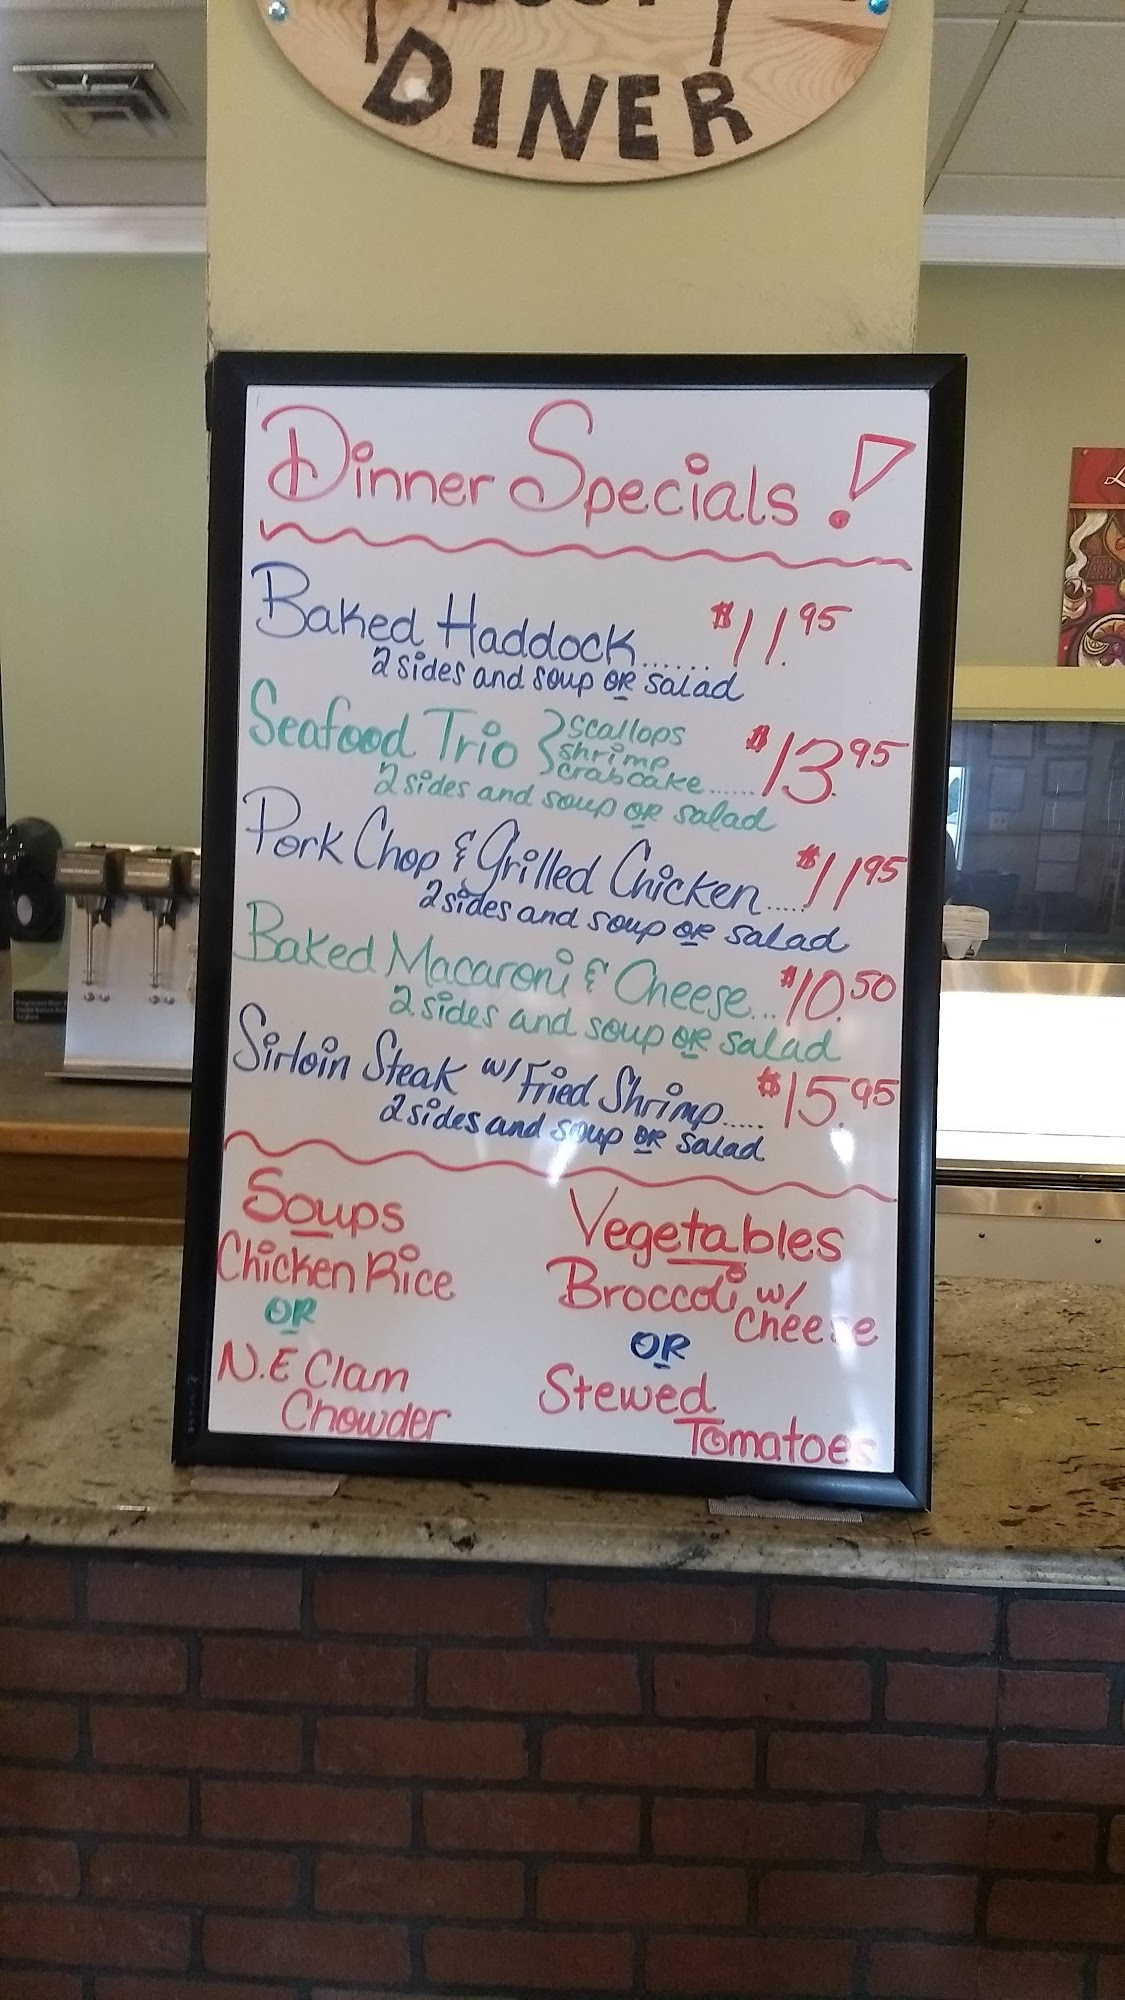 DINER
Dinner Specials!
Baked Haddock...... $11.95
2 sides and soup OR salad
Seafood Trio } scallops
shrimp
crabcake...... $13.95
2 sides and soup OR salad
Pork Chop & Grilled Chicken..... $11.95
2 sides and soup OR salad
Baked Macaroni & Cheese... $10.50
2 sides and soup OR salad
Sirloin Steak w/ Fried Shrimp..... $15.95
2 sides and soup OR salad
Soups
Chicken Rice
OR
N.E Clam
Chowder
Vegetables
Broccoli w/
Cheese
OR
Stewed
Tomatoes